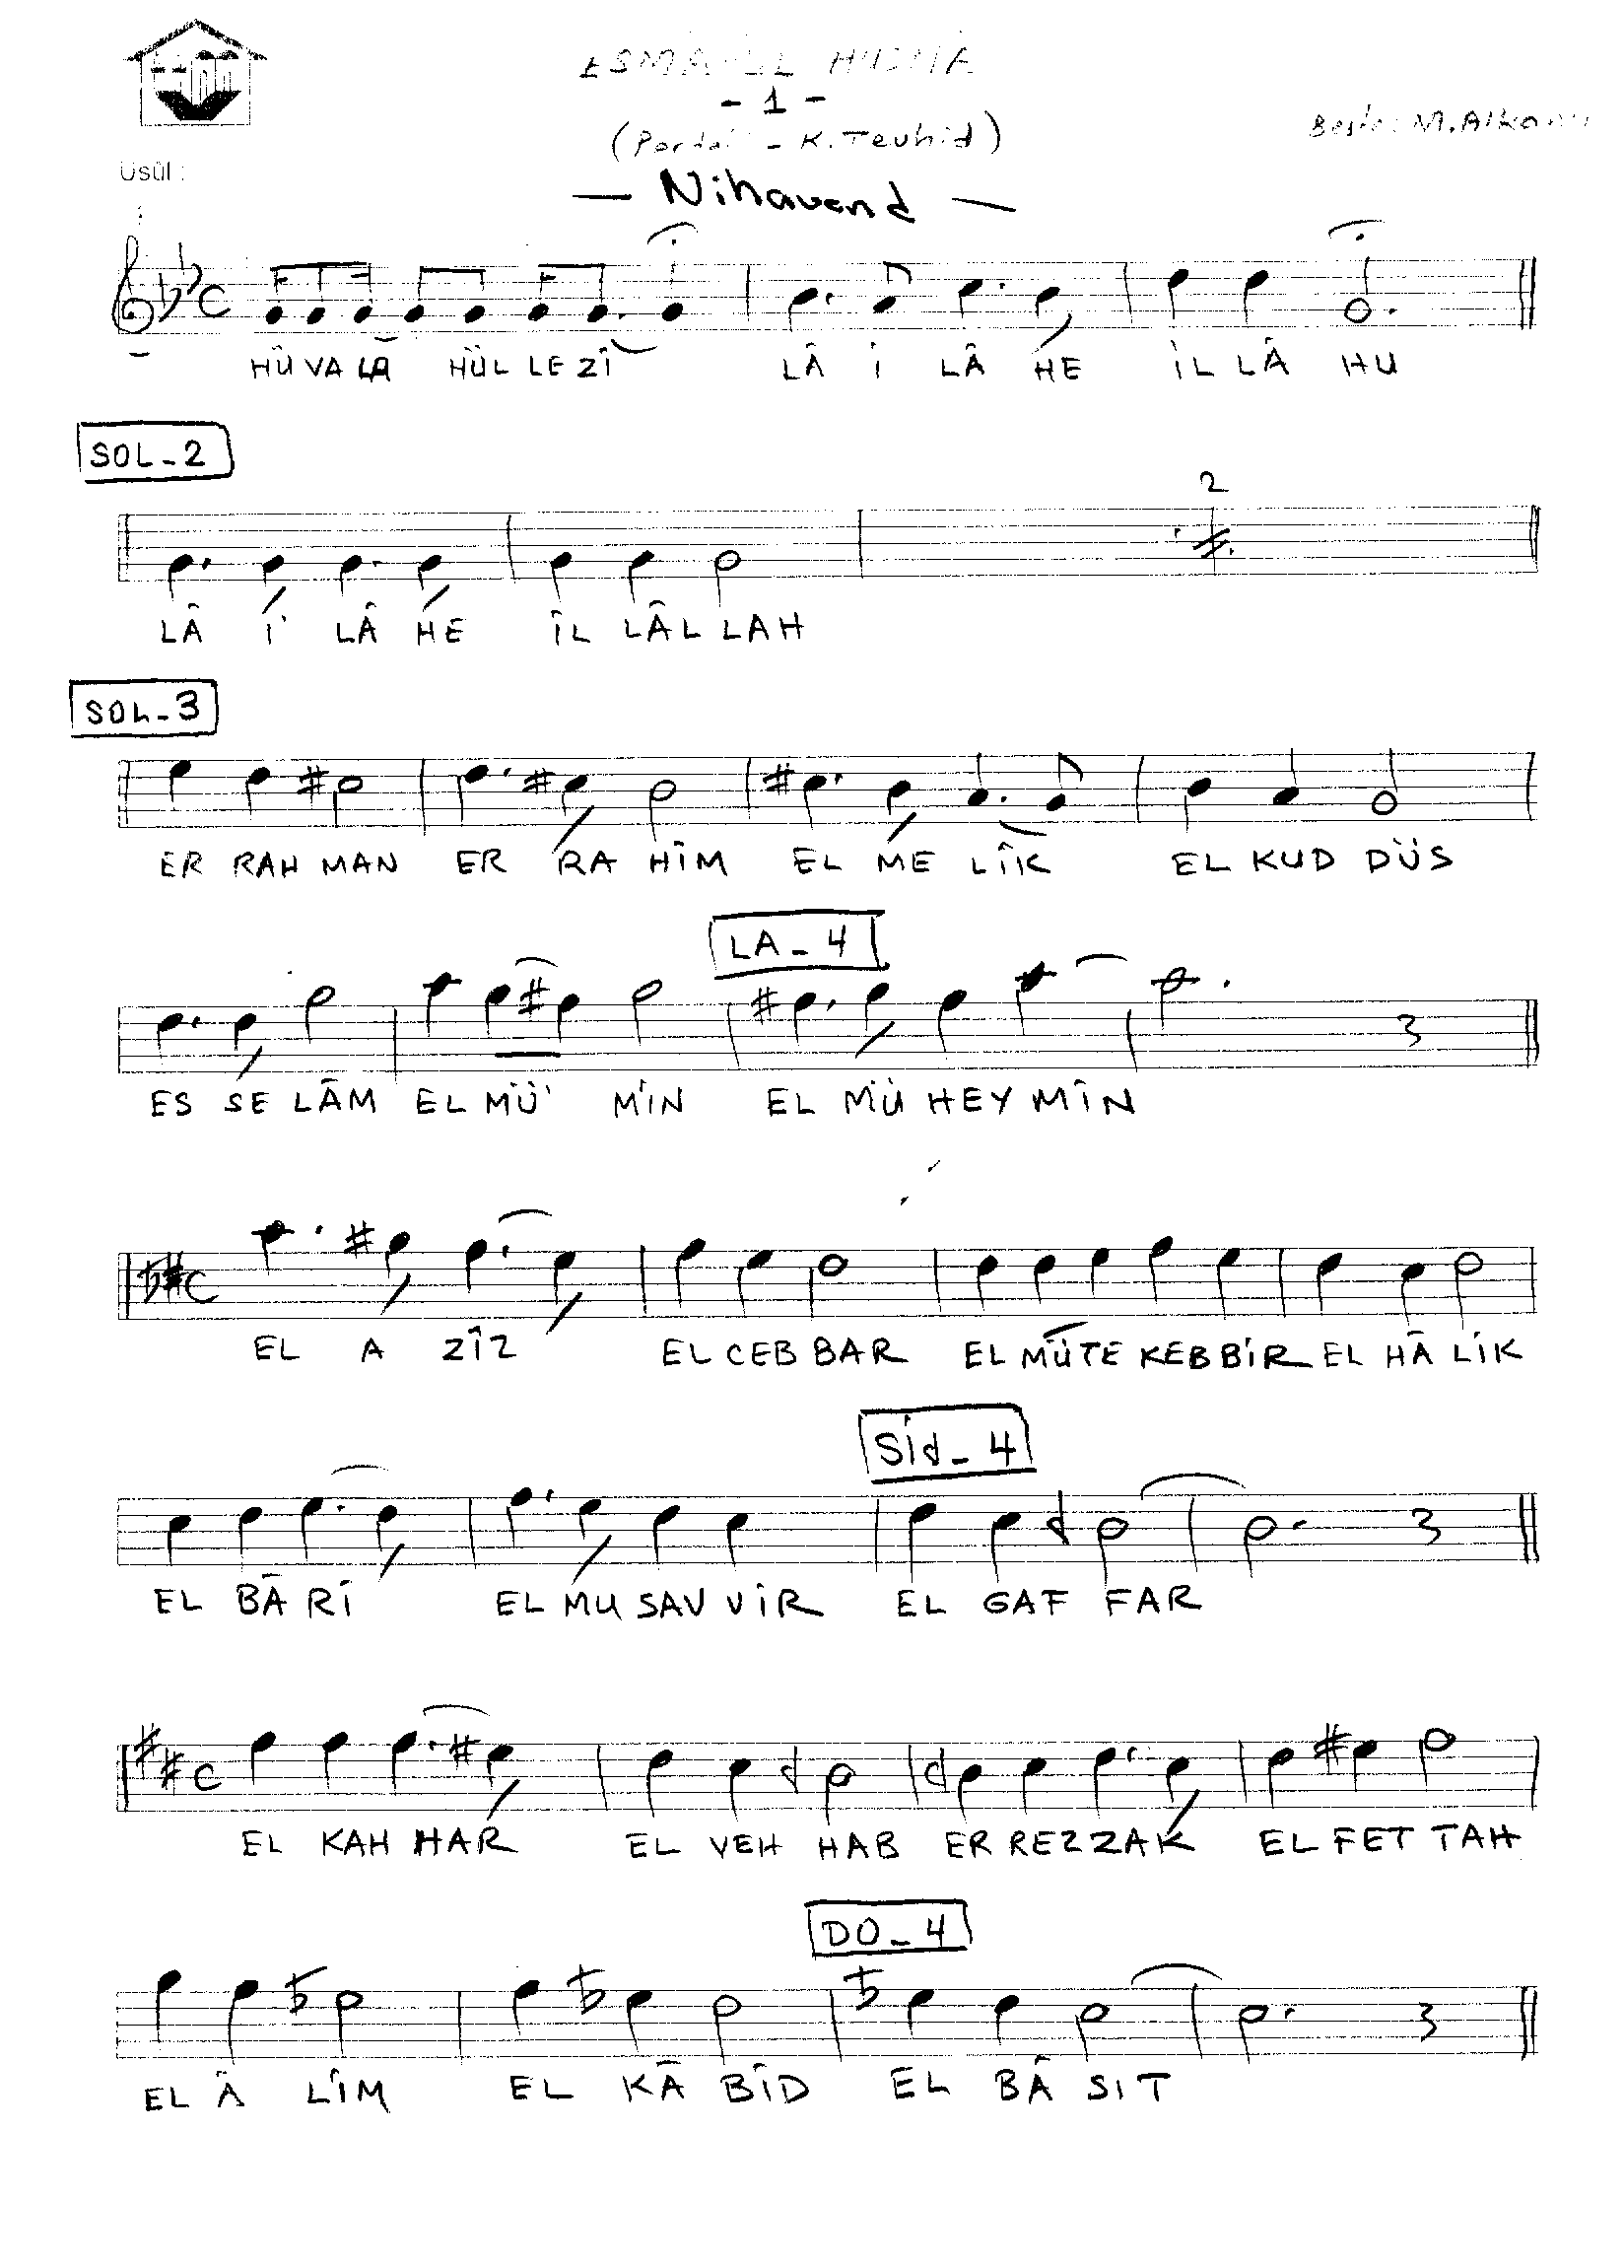 ESMA-ÜL HÜSNA
- 1 -
K. Tevhid)
Beste: M. Alkan
Usûl :
— Nihavend —
HÜ VA LA HÜL LE ZÎ LÂ İ LÂ HE İL LÂ HU
SOL - 2
2
LÂ İ LÂ HE ÎL LÂL LAH
SOL - 3
ER RAH MAN ER RA HÎM EL ME LÎK EL KUD DÜS
LA - 4
ES SE LÂM EL MÜ' MİN EL MÜ HEY MÎN
EL A ZÎZ EL CEB BAR EL MÜ TE KEB BİR EL HÂ LİK
Sid - 4
EL BÂ RÎ EL MU SAV VİR EL GAF FAR
EL KAH HAR EL VEH HAB ER REZ ZAK EL FET TAH
DO - 4
EL Â LÎM EL KÂ BÎD EL BÂ SIT